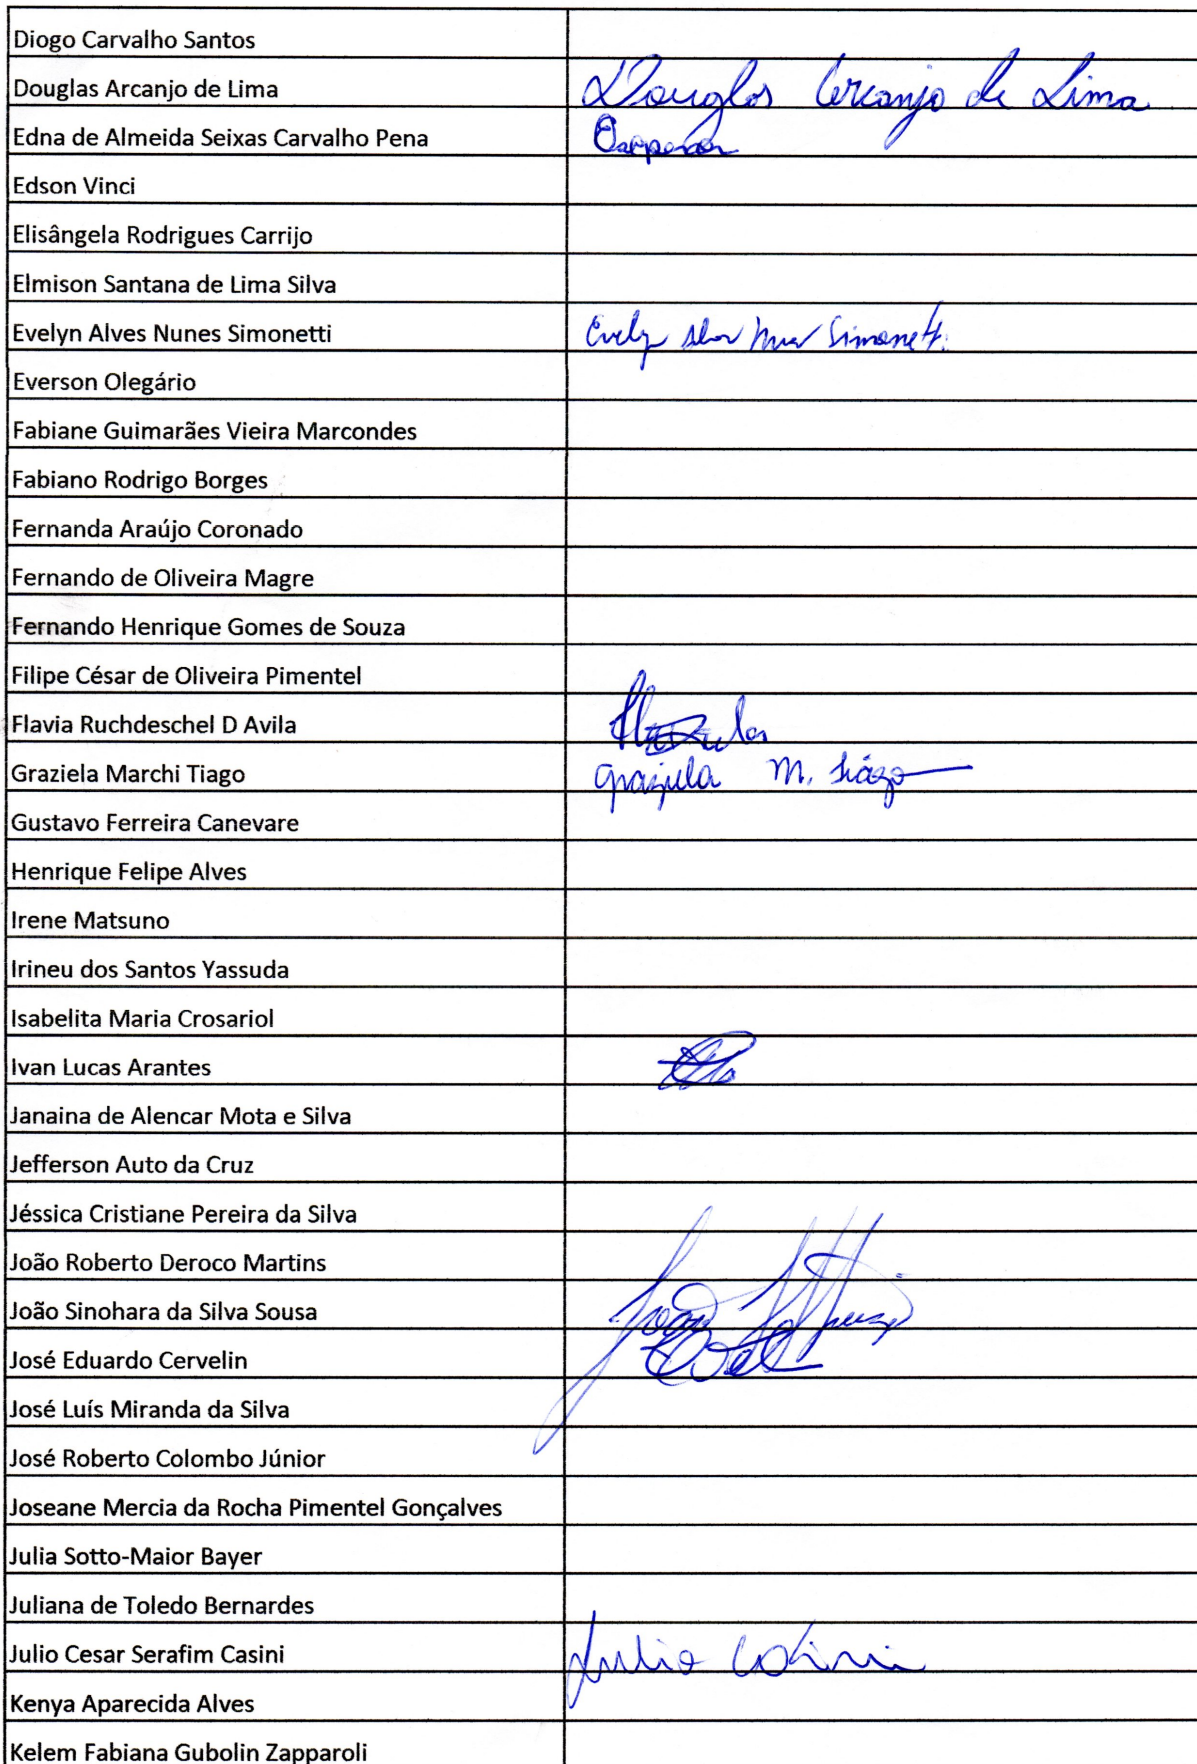 Diogo Carvalho Santos
Douglas Arcanjo de Lima Douglas Arcanjo de Lima
Edna de Almeida Seixas Carvalho Pena
Edson Vinci
Elisângela Rodrigues Carrijo
Elmison Santana de Lima Silva
Evelyn Alves Nunes Simonetti Evelyn Alves Nunes Simonetti
Everson Olegário
Fabiane Guimarães Vieira Marcondes
Fabiano Rodrigo Borges
Fernanda Araújo Coronado
Fernando de Oliveira Magre
Fernando Henrique Gomes de Souza
Filipe César de Oliveira Pimentel
Flavia Ruchdeschel D Avila
Graziela Marchi Tiago Graziela M. Tiago
Gustavo Ferreira Canevare
Henrique Felipe Alves
Irene Matsuno
Irineu dos Santos Yassuda
Isabelita Maria Crosariol
Ivan Lucas Arantes
Janaina de Alencar Mota e Silva
Jefferson Auto da Cruz
Jéssica Cristiane Pereira da Silva
João Roberto Deroco Martins
João Sinohara da Silva Sousa João
José Eduardo Cervelin
José Luís Miranda da Silva
José Roberto Colombo Júnior
Joseane Mercia da Rocha Pimentel Gonçalves
Julia Sotto-Maior Bayer
Juliana de Toledo Bernardes
Julio Cesar Serafim Casini Julio Casini
Kenya Aparecida Alves
Kelem Fabiana Gubolin Zapparoli